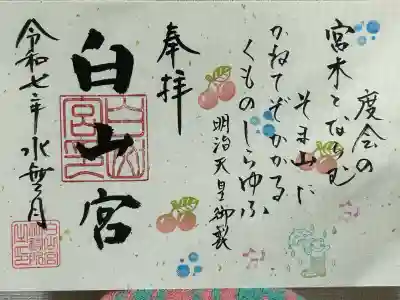 度会の
宮木となむ
そま山に
かねてぞかかる
くものしらゆふ
明治天皇御製
奉拝
白山宮
令和七年水無月